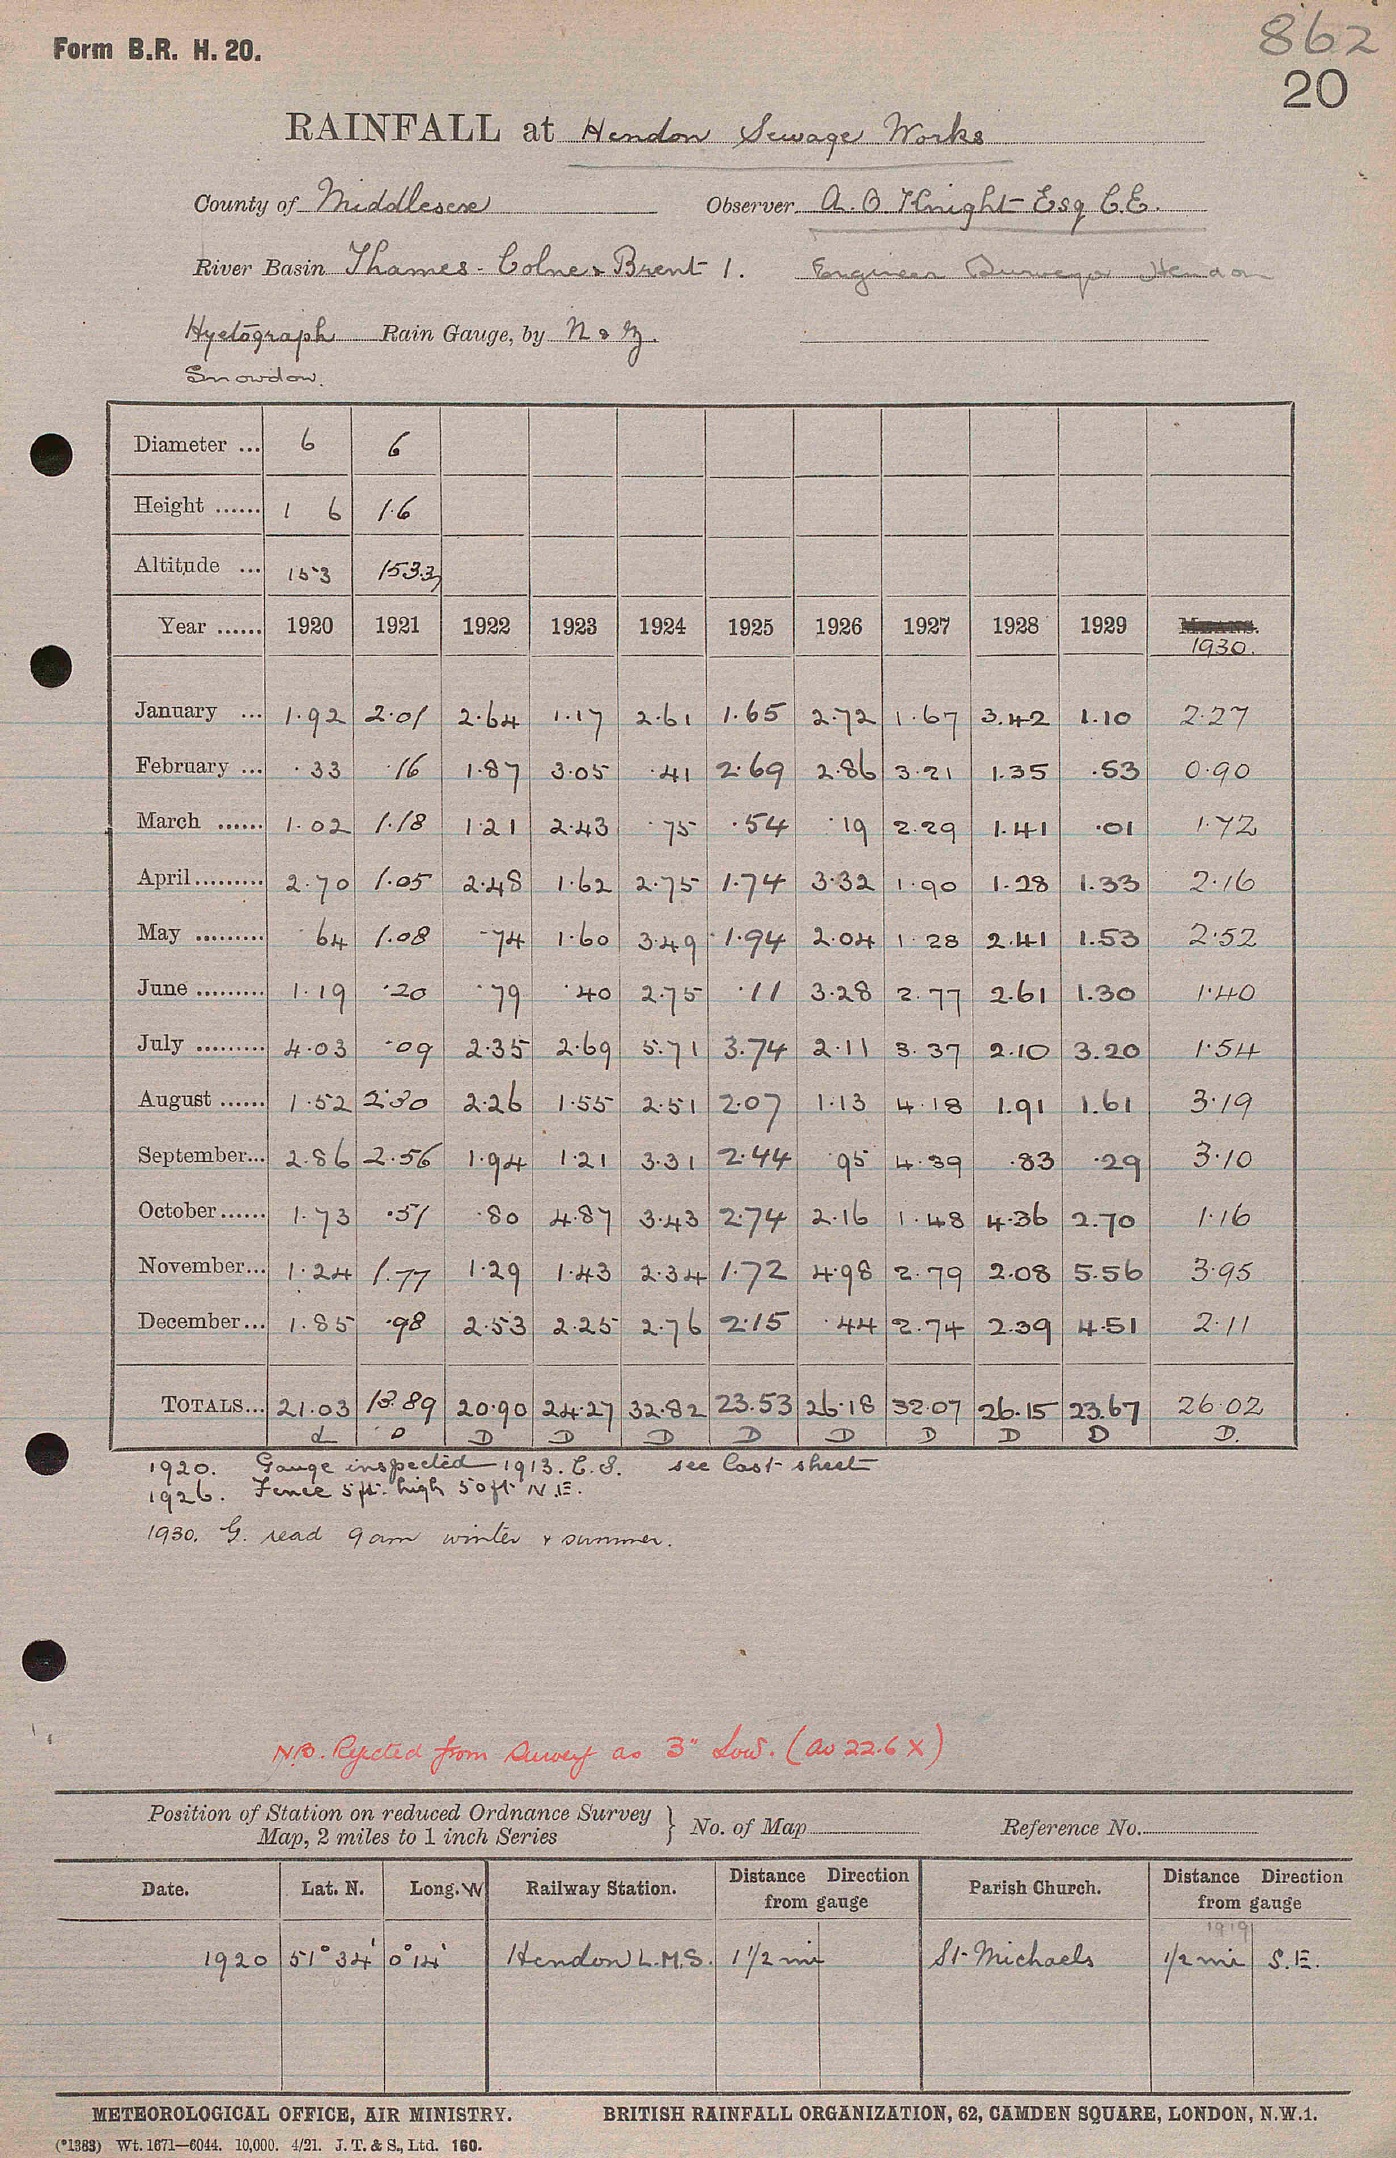 Form B.R. H. 20.
862
20
RAINFALL at Hendon Sewage Works
County of Middlesex Observer A. O. Knight Esq C.E.
River Basin Thames - Colne & Brent 1. Engineer Surveyor Hendon
Hyetograph Rain Gauge, by N & Z.
Snowdon.
Diameter ... 6 6
Height ...... 1 6 1.6
Altitude ... 153 153.3
Year ...... 1920 1921 1922 1923 1924 1925 1926 1927 1928 1929 1930.
January ... 1.92 2.01 2.64 1.17 2.61 1.65 2.72 1.67 3.42 1.10 2.27
February ... .33 .16 1.87 3.05 .41 2.69 2.86 3.21 1.35 .53 0.90
March ...... 1.02 1.18 1.21 2.43 .75 .54 .19 2.29 1.41 .01 1.72
April......... 2.70 1.05 2.48 1.62 2.75 1.74 3.32 1.90 1.28 1.33 2.16
May ......... .64 1.08 .74 1.60 3.49 1.94 2.04 1.28 2.41 1.53 2.52
June ......... 1.19 .20 .79 .40 2.75 .11 3.28 2.77 2.61 1.30 1.40
July ......... 4.03 .09 2.35 2.69 5.71 3.74 2.11 3.37 2.10 3.20 1.54
August ...... 1.52 2.30 2.26 1.55 2.51 2.07 1.13 4.18 1.91 1.61 3.19
September... 2.86 2.56 1.94 1.21 3.31 2.44 .95 4.39 .83 .29 3.10
October...... 1.73 .51 .80 4.87 3.43 2.74 2.16 1.48 4.36 2.70 1.16
November... 1.24 1.77 1.29 1.43 2.34 1.72 4.98 2.79 2.08 5.56 3.95
December... 1.85 .98 2.53 2.25 2.76 2.15 .44 2.74 2.39 4.51 2.11
TOTALS... 21.03 13.89 20.90 24.27 32.82 23.53 26.18 32.07 26.15 23.67 26.02
d D D D D D D D D D D.
1920. Gauge inspected 1913. C.S. see last sheet
1926. Fence 5 ft. high 50ft N.E.
1930. G. read 9am winter & summer.
N.B. Rejected from Survey as 3" Low. (av 22.6 X)
Position of Station on reduced Ordnance Survey Map, 2 miles to 1 inch Series } No. of Map Reference No.
Date. Lat. N. Long. W Railway Station. Distance Direction from gauge Parish Church. Distance Direction from gauge
1919
1920 51° 34' 0° 14' Hendon L.M.S. 1 1/2 mi St Michaels 1/2 mi S.E.
METEOROLOGICAL OFFICE, AIR MINISTRY. BRITISH RAINFALL ORGANIZATION, 62, CAMDEN SQUARE, LONDON, N.W.1.
(*1383) Wt. 1671—6044. 10,000. 4/21. J. T. & S., Ltd. 160.